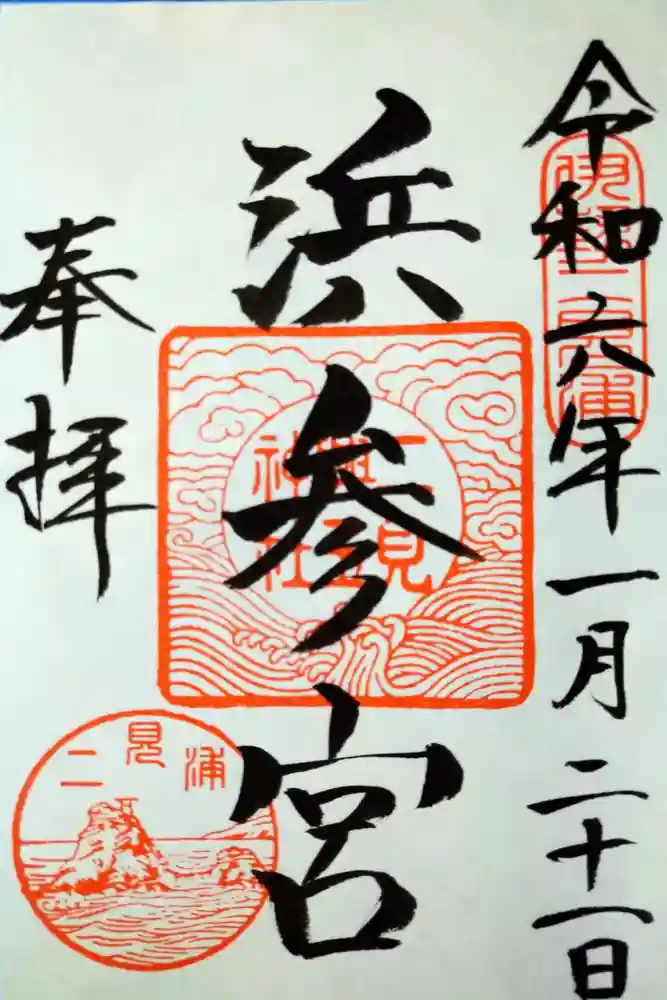 令和六年一月二十一日
伊勢二見浦
浜参宮
二見
興玉
神社
奉拝
二見浦